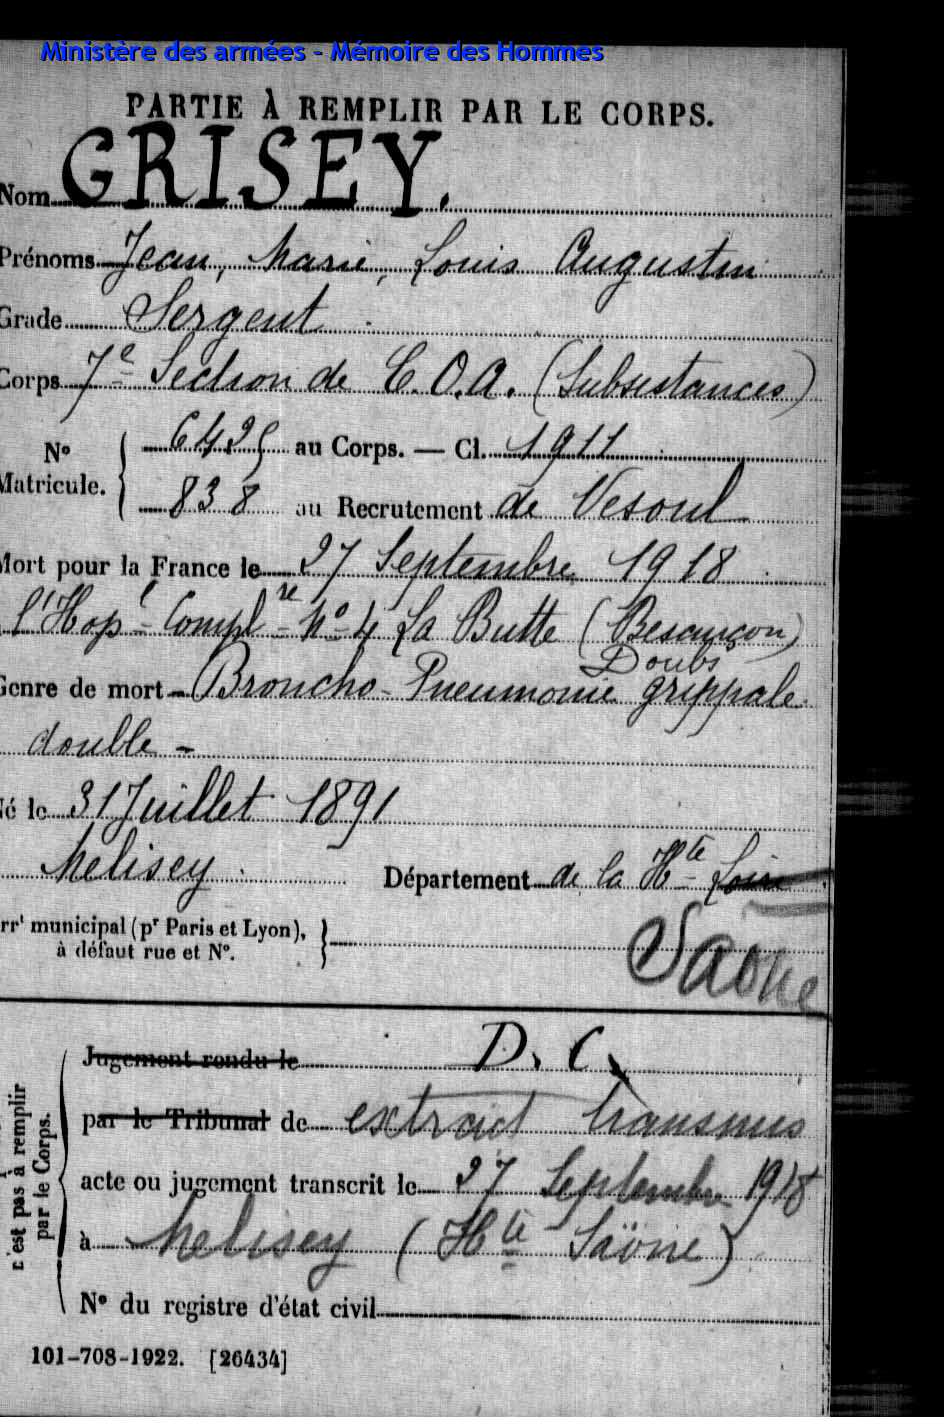 Ministère des armées - Mémoire des Hommes
PARTIE À REMPLIR PAR LE CORPS.
Nom GRISEY.
Prénoms Jean, Marie, Louis Augustin
Grade Sergent.
Corps 7e Section de C.O.A. (Subsistances)
No Matricule. { 6425 au Corps. — Cl. 1911
838 au Recrutement de Vesoul
Mort pour la France le 27 Septembre 1918
l'Hopl Complre No 4 La Butte (Besançon)
Doubs
Genre de mort Broncho-Pneumonie grippale
double -
Né le 31 Juillet 1891
Melisey. Département de la Hte Loire
Saone
rrt municipal (pr Paris et Lyon),
à défaut rue et No.
Jugement rendu le D. C.
par le Tribunal de extrait transmis
acte ou jugement transcrit le 27 Septembre 1918
à Melisey (Hte Saöne)
No du registre d'état civil
n'est pas à remplir
par le Corps.
101-708-1922. [26434]